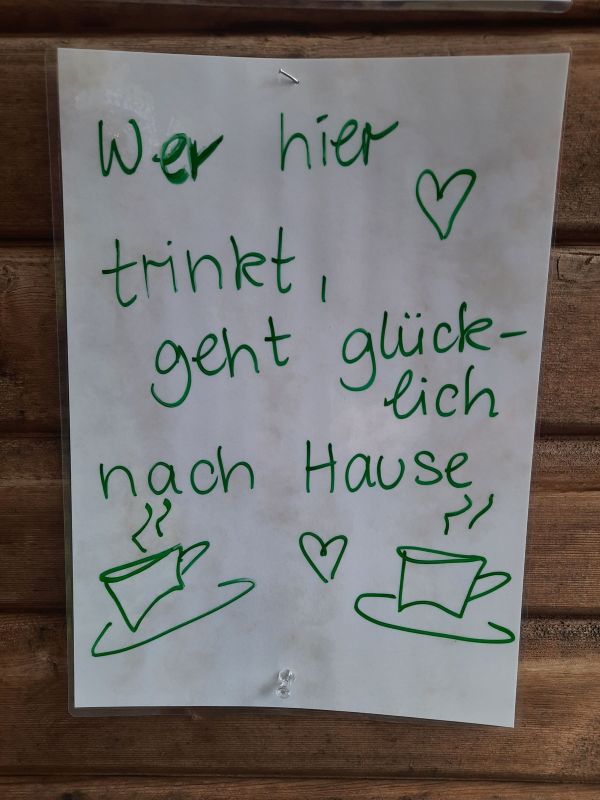 Wer hier
trinkt,
geht glück-
lich
nach Hause